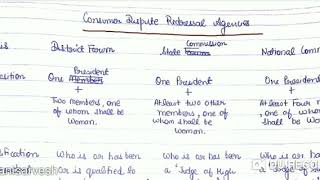 Consumer Dispute Redressal Agencies
District Forum
Commission
State Forum
National Comm
One President
Member
+
Two members, one
of whom shall be
Woman.
One President
+
At least two other
members, one of
whom shall be
Woman.
One President
+
At least Four
one of wh
shall be Wo
Who is or has been
or is qualified to
Who is or has been
a "Judge of High
Who is or has b
a "Judge of